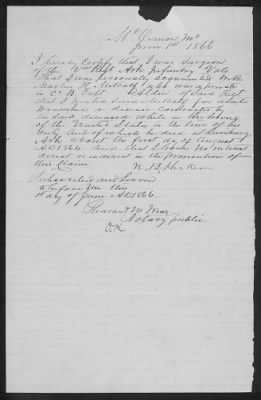 Mt Vernon Mo
June 1st 1866
I hereby Certify that I was Surgeon
of the 2nd Regt Ark Infantry Vols
That I was personally acquainted with
Martin H Metcalf who was private
in Co B Capt of Said Regt
that I treated Said Metcalf for
a disease contracted by
the Said deceased while in the Service
of the United States in the line of his
duty And of which he died at Lewisburg
Ark about the first day of August
AD 1864 And that I have no interest
direct or indirect in the prosecution of
this Claim
Subscribed and Sworn
to before Me this
day of June AD 1866
Pleasant M Wear
Notary public